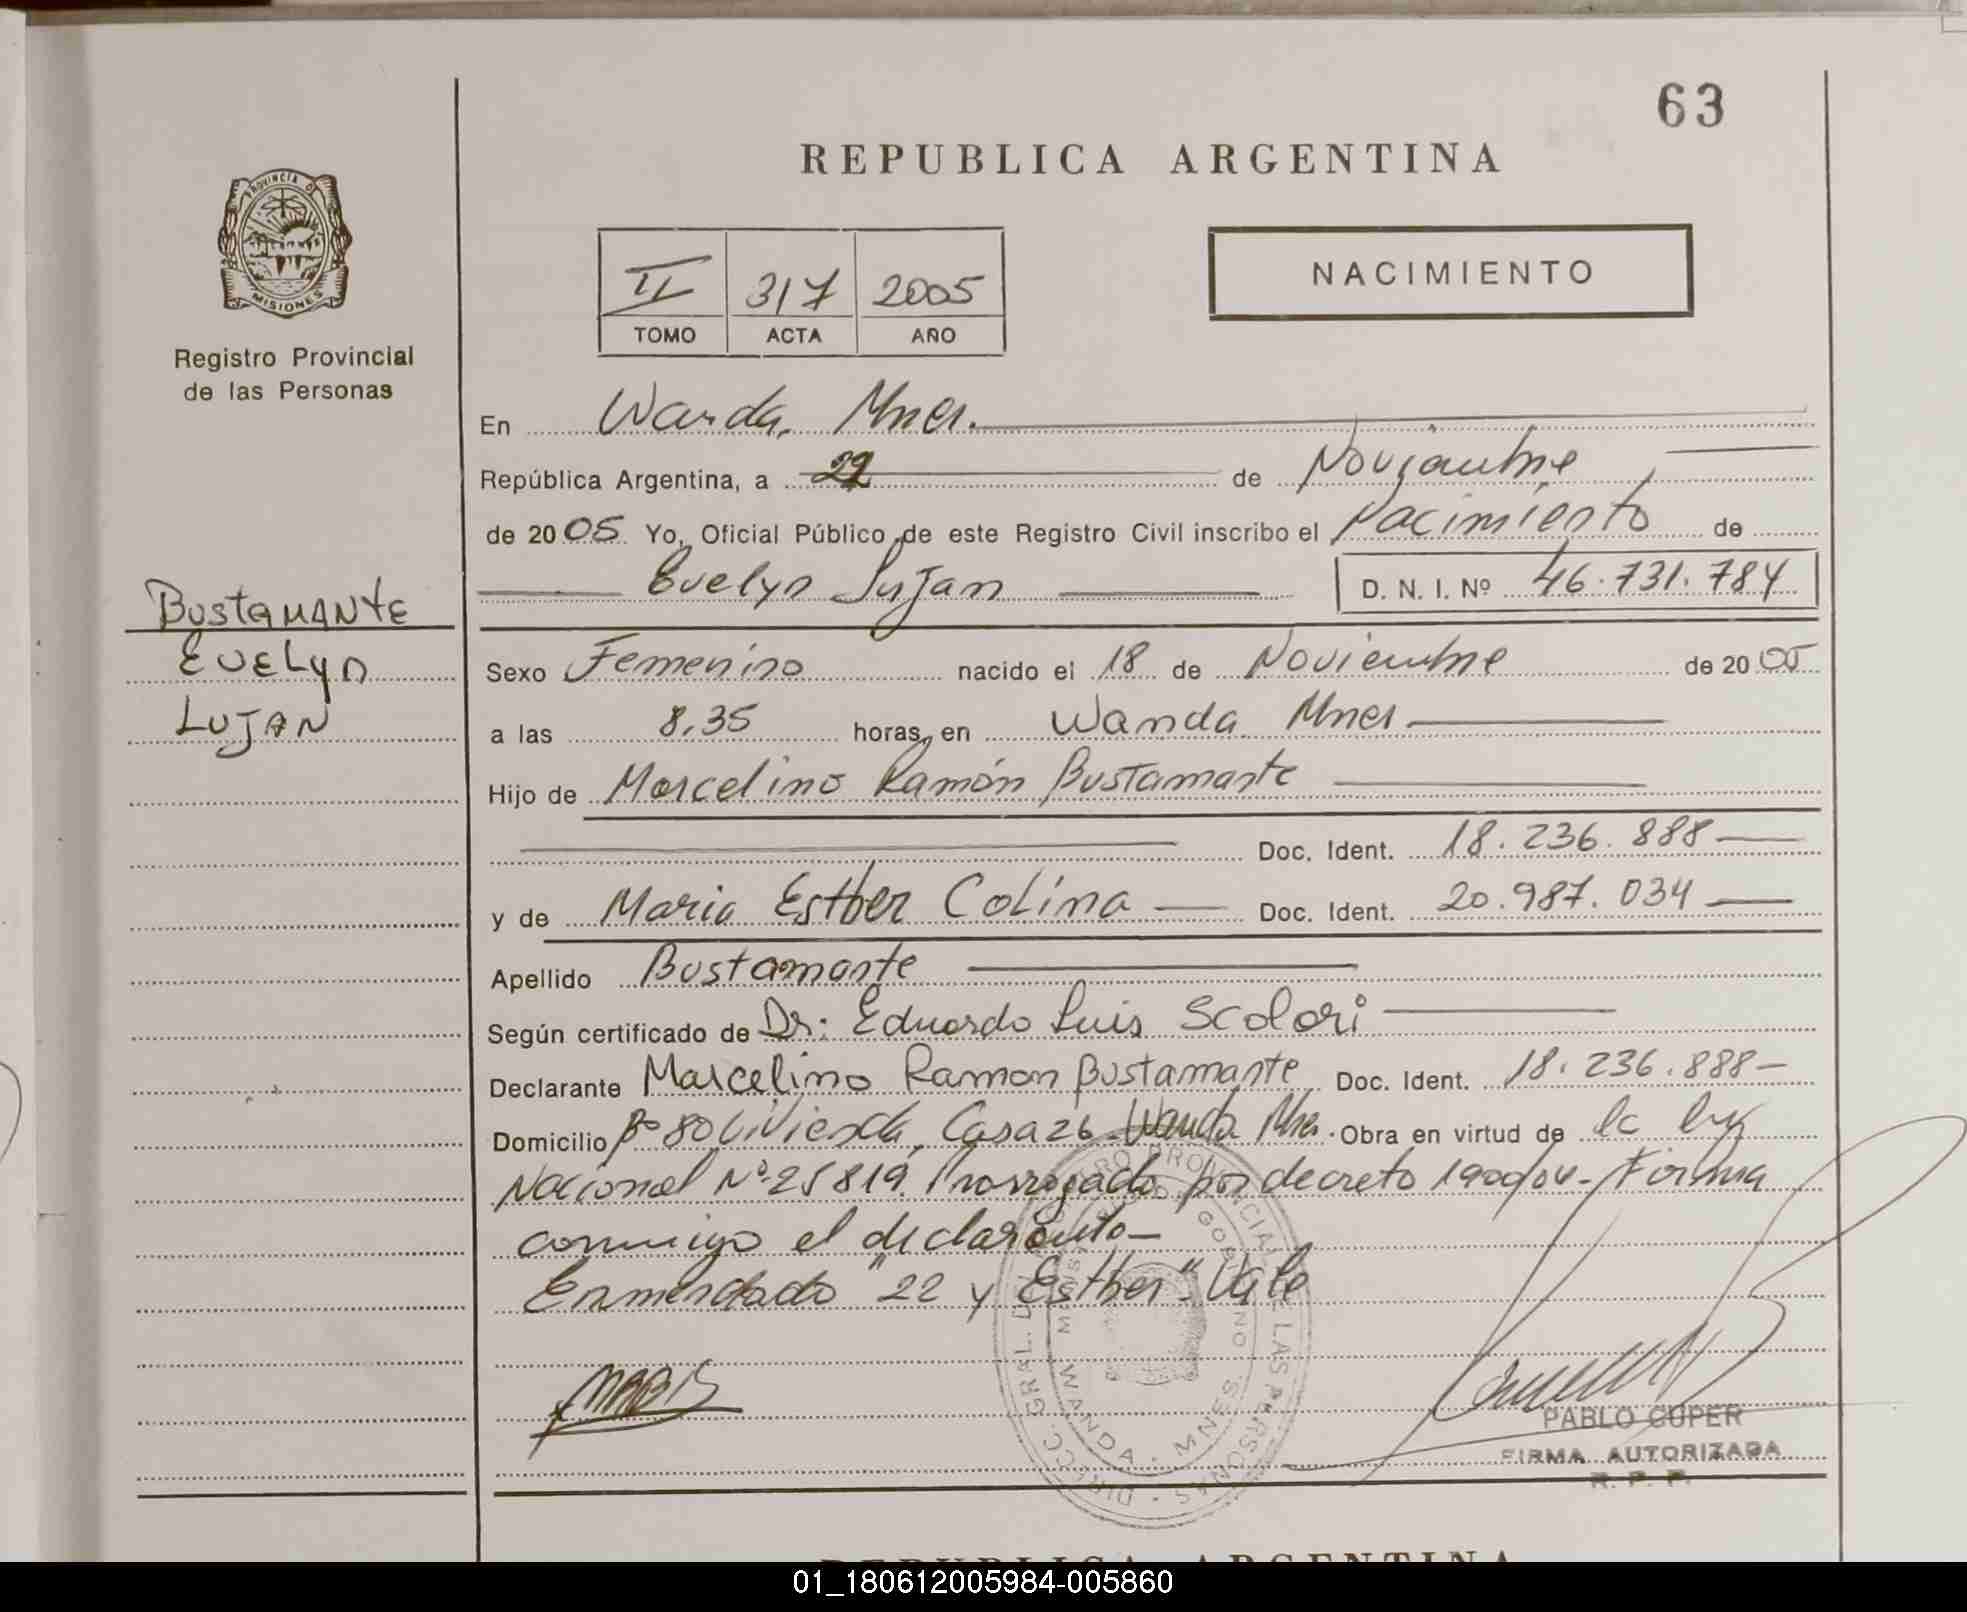 63
REPUBLICA ARGENTINA
PROVINCIA DE
MISIONES
Registro Provincial
de las Personas
II 317 2005
TOMO ACTA AÑO
NACIMIENTO
En Wanda, Mnes.
República Argentina, a 22 de Noviembre
de 2005 Yo, Oficial Público de este Registro Civil inscribo el Nacimiento de
Evelyn Lujan D. N. I. Nº 46.731.784
Bustamante
Evelyn
Lujan
Sexo Femenino nacido el 18 de Noviembre de 2005
a las 8,35 horas, en Wanda Mnes
Hijo de Marcelino Ramón Bustamante
Doc. Ident. 18.236.888
y de Maria Esther Colina Doc. Ident. 20.987.034
Apellido Bustamante
Según certificado de Dr: Eduardo Luis Scolari
Declarante Marcelino Ramon Bustamante Doc. Ident. 18.236.888
Domicilio Bº 80 Vivienda, Casa 26 Wanda Mnes. Obra en virtud de la ley
Nacional Nº 25819. Prorrogado por decreto 1900/04- Firma
conmigo el declarante-
Enmendado "22 y Esther". Vale
WANDA - MNES.
PABLO CUPER
FIRMA AUTORIZADA
R. P. P.
REPUBLICA ARGENTINA
01_180612005984-005860